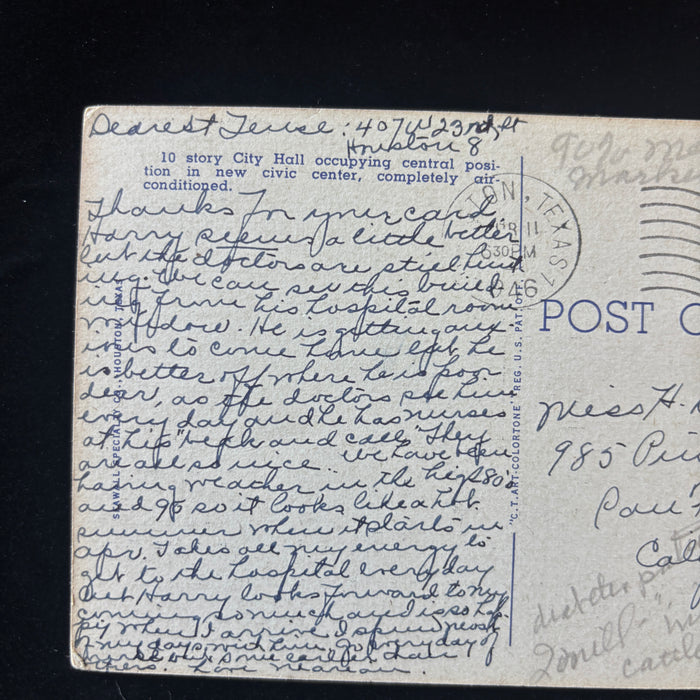 Dearest Teuse: 407 W 23rd St
Houston 8
10 story City Hall occupying central posi-
tion in new civic center, completely air-
conditioned.
Thanks for your card
Harry seems a little better
but the doctors are still hunt
ing. We can see this build
ing from his hospital room
window. He is getting anx
ious to come home but he
is better off where he is poor
dear, as the doctors see him
every day and he has nurses
at his "beck and call" They
are all so nice. We have been
having weather in the high 80's
and 90 so it looks like a hot
summer when it starts in
Apr. Takes all my energy to
get to the hospital every day
but Harry looks forward to my
coming so much and is so hap
py when I arrive I spend most
of my days with him. Go every day
some earlier than
others. Love Marian.
SEAWALL SPECIALTY CO., HOUSTON, TEXAS
"C.T. ART-COLORTONE" REG. U.S. PAT. OFF.
TON, TEXAS 1
11
630 PM
46
POST C
Miss H.
985
Cal